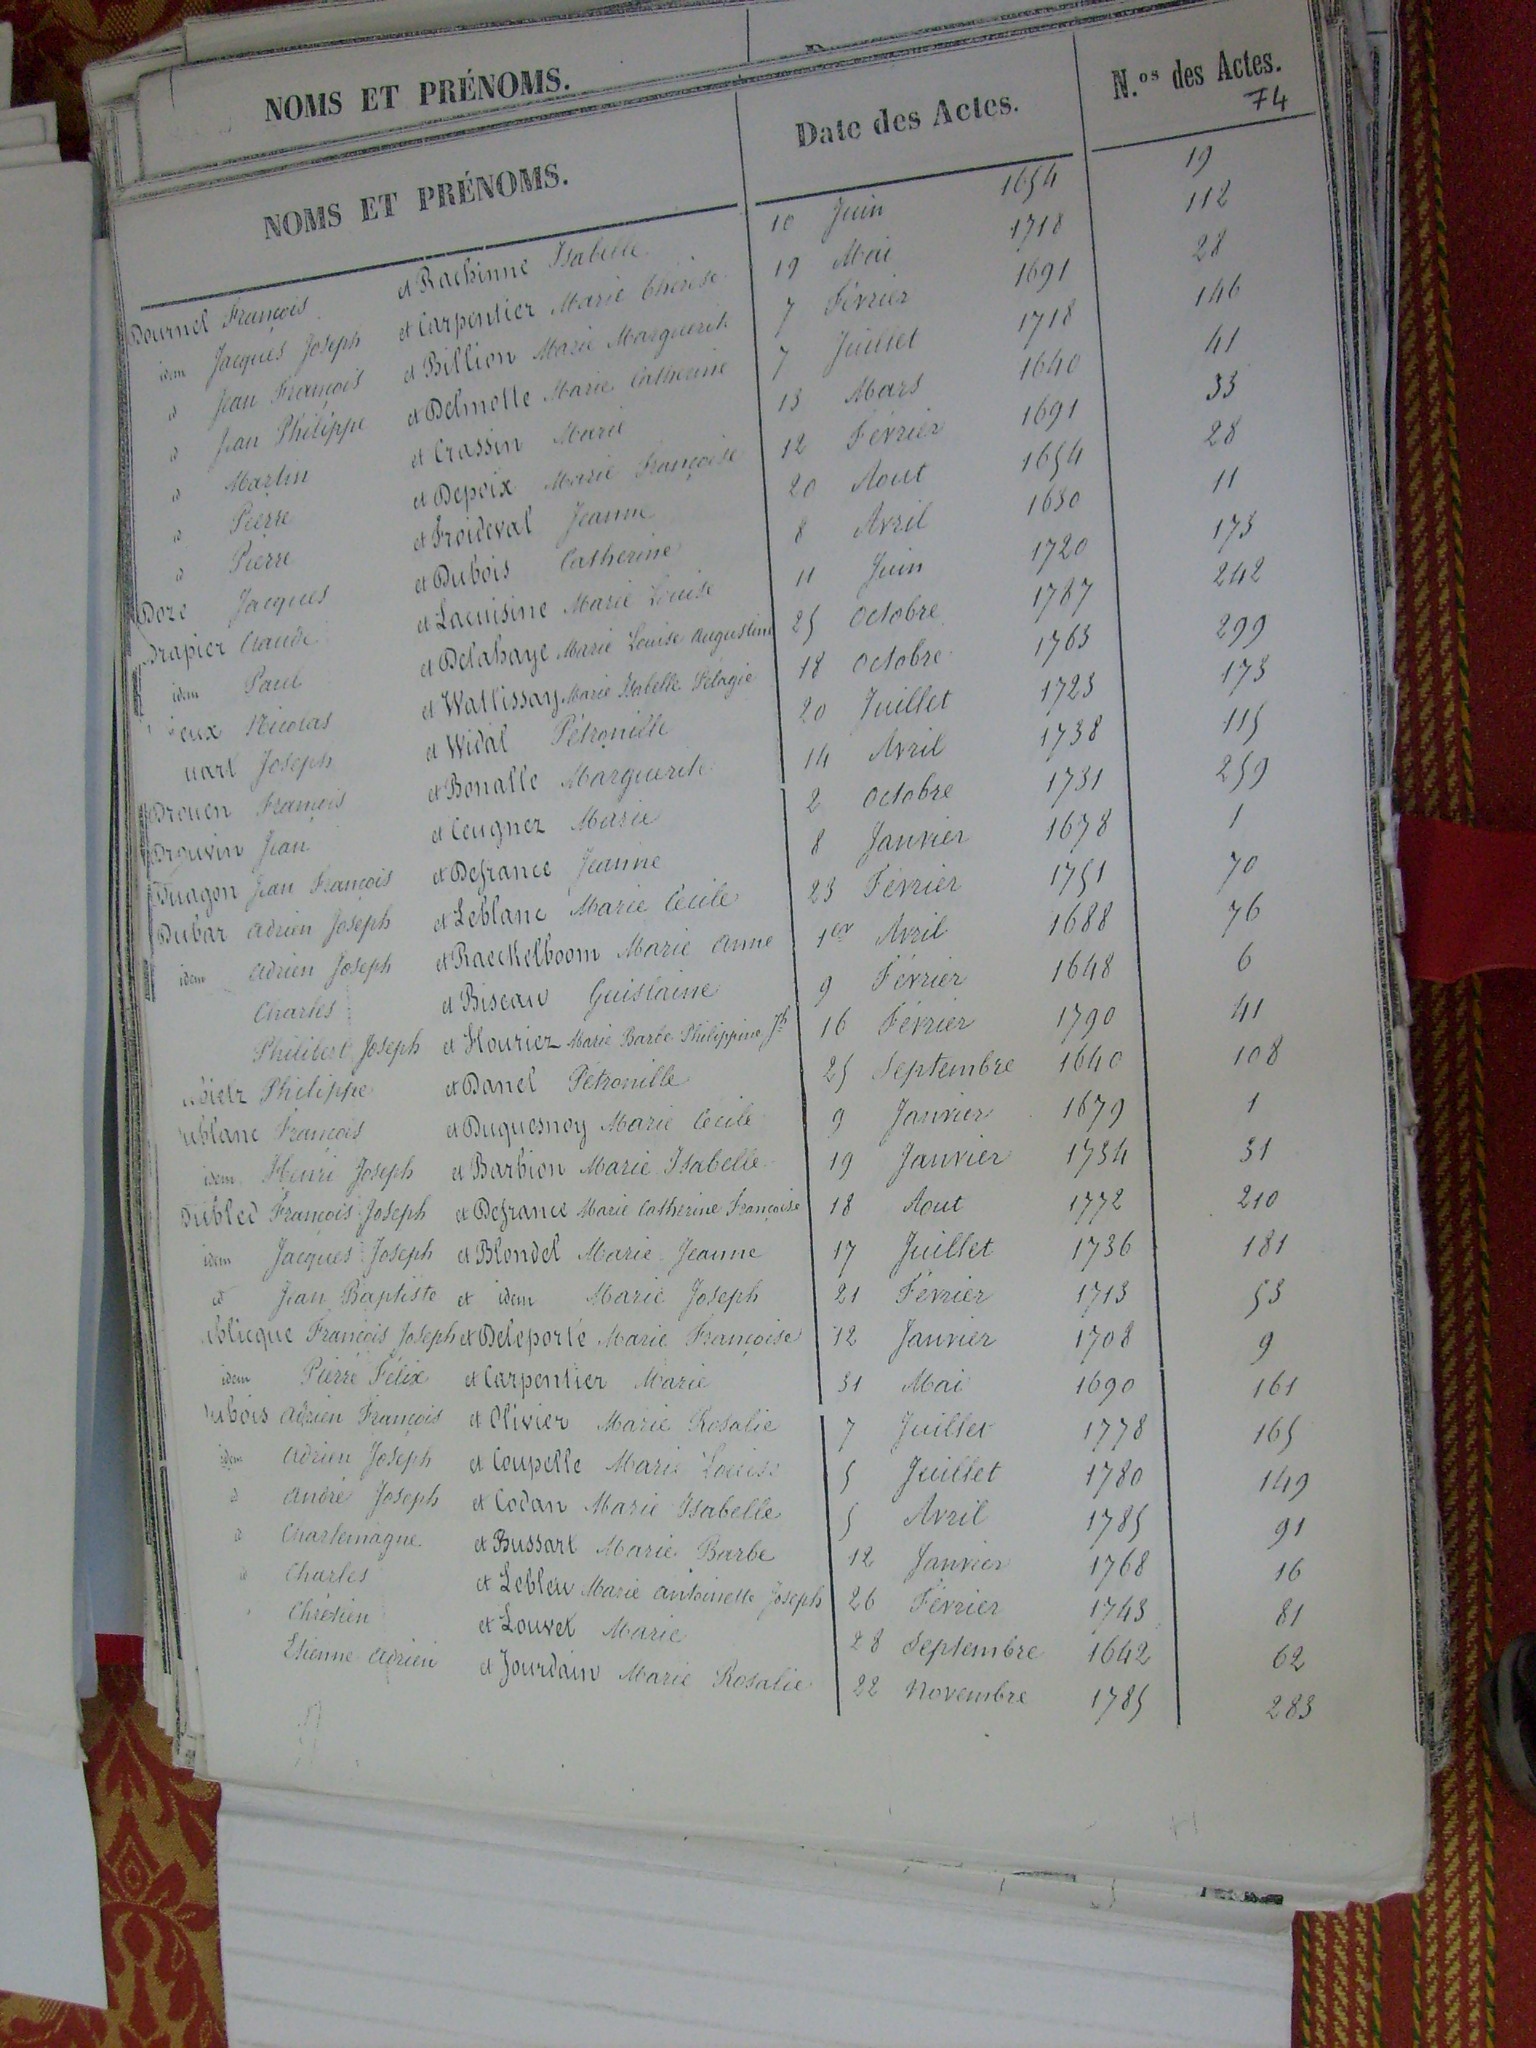 NOMS ET PRÉNOMS.
NOMS ET PRÉNOMS. Date des Actes. N.os des Actes.
74
Dournel François et Rachinne Isabelle 10 Juin 1654 19
idem Jacques Joseph et Carpentier Marie Thérèse 19 Mai 1718 112
d Jean François et Billion Marie Marguerite 7 Février 1691 28
d Jean Philippe et Delmotte Marie Catherine 7 Juillet 1718 146
d Martin et Crassin Marie 13 Mars 1640 41
d Pierre et Depoix Marie Françoise 12 Février 1691 33
d Pierre et Froideval Jeanne 20 Aout 1654 28
Doze Jacques et Dubois Catherine 8 Avril 1630 11
Drapier Claude et Lacuisine Marie Louise 11 Juin 1720 173
idem Paul et Delahaye Marie Louise Augustine 25 Octobre 1787 242
eux Nicolas et Wallissay Marie Isabelle Pélagie 18 Octobre 1763 299
uart Joseph et Widal Pétronille 20 Juillet 1723 173
Drouen François et Bonalle Marguerite 14 Avril 1738 115
Drouvin Jean et Ceugnez Marie 2 Octobre 1731 259
Duagon Jean François et Defrance Jeanne 8 Janvier 1678 1
Dubar Adrien Joseph et Leblanc Marie Cécile 23 Février 1751 70
idem Adrien Joseph et Raeckelboom Marie Anne 1er Avril 1688 76
Charles et Biseau Guislaine 9 Février 1648 6
Philibert Joseph et Houriez Marie Barbe Philippine Jh 16 Février 1790 41
bietz Philippe et Danel Pétronille 25 Septembre 1640 108
ublanc François et Duquesnoy Marie Cécile 9 Janvier 1679 1
idem Henri Joseph et Barbion Marie Isabelle 19 Janvier 1734 31
Dubled François Joseph et Defrance Marie Catherine Françoise 18 Aout 1772 210
idem Jacques Joseph et Blondel Marie Jeanne 17 Juillet 1736 181
d Jean Baptiste et idem Marie Joseph 21 Février 1713 53
ublicque François Joseph et Deleporte Marie Françoise 12 Janvier 1708 9
idem Pierre Félix et Carpentier Marie 31 Mai 1690 161
ubois Adrien François et Olivier Marie Rosalie 7 Juillet 1778 165
idem Adrien Joseph et Coupelle Marie Louise 5 Juillet 1780 149
d André Joseph et Codan Marie Isabelle 5 Avril 1785 91
d Charlemagne et Bussart Marie Barbe 12 Janvier 1768 16
d Charles et Lebleu Marie Antoinette Joseph 26 Février 1743 81
Chrétien et Louvet Marie 28 Septembre 1642 62
Etienne Adrien et Jourdain Marie Rosalie 22 Novembre 1785 283